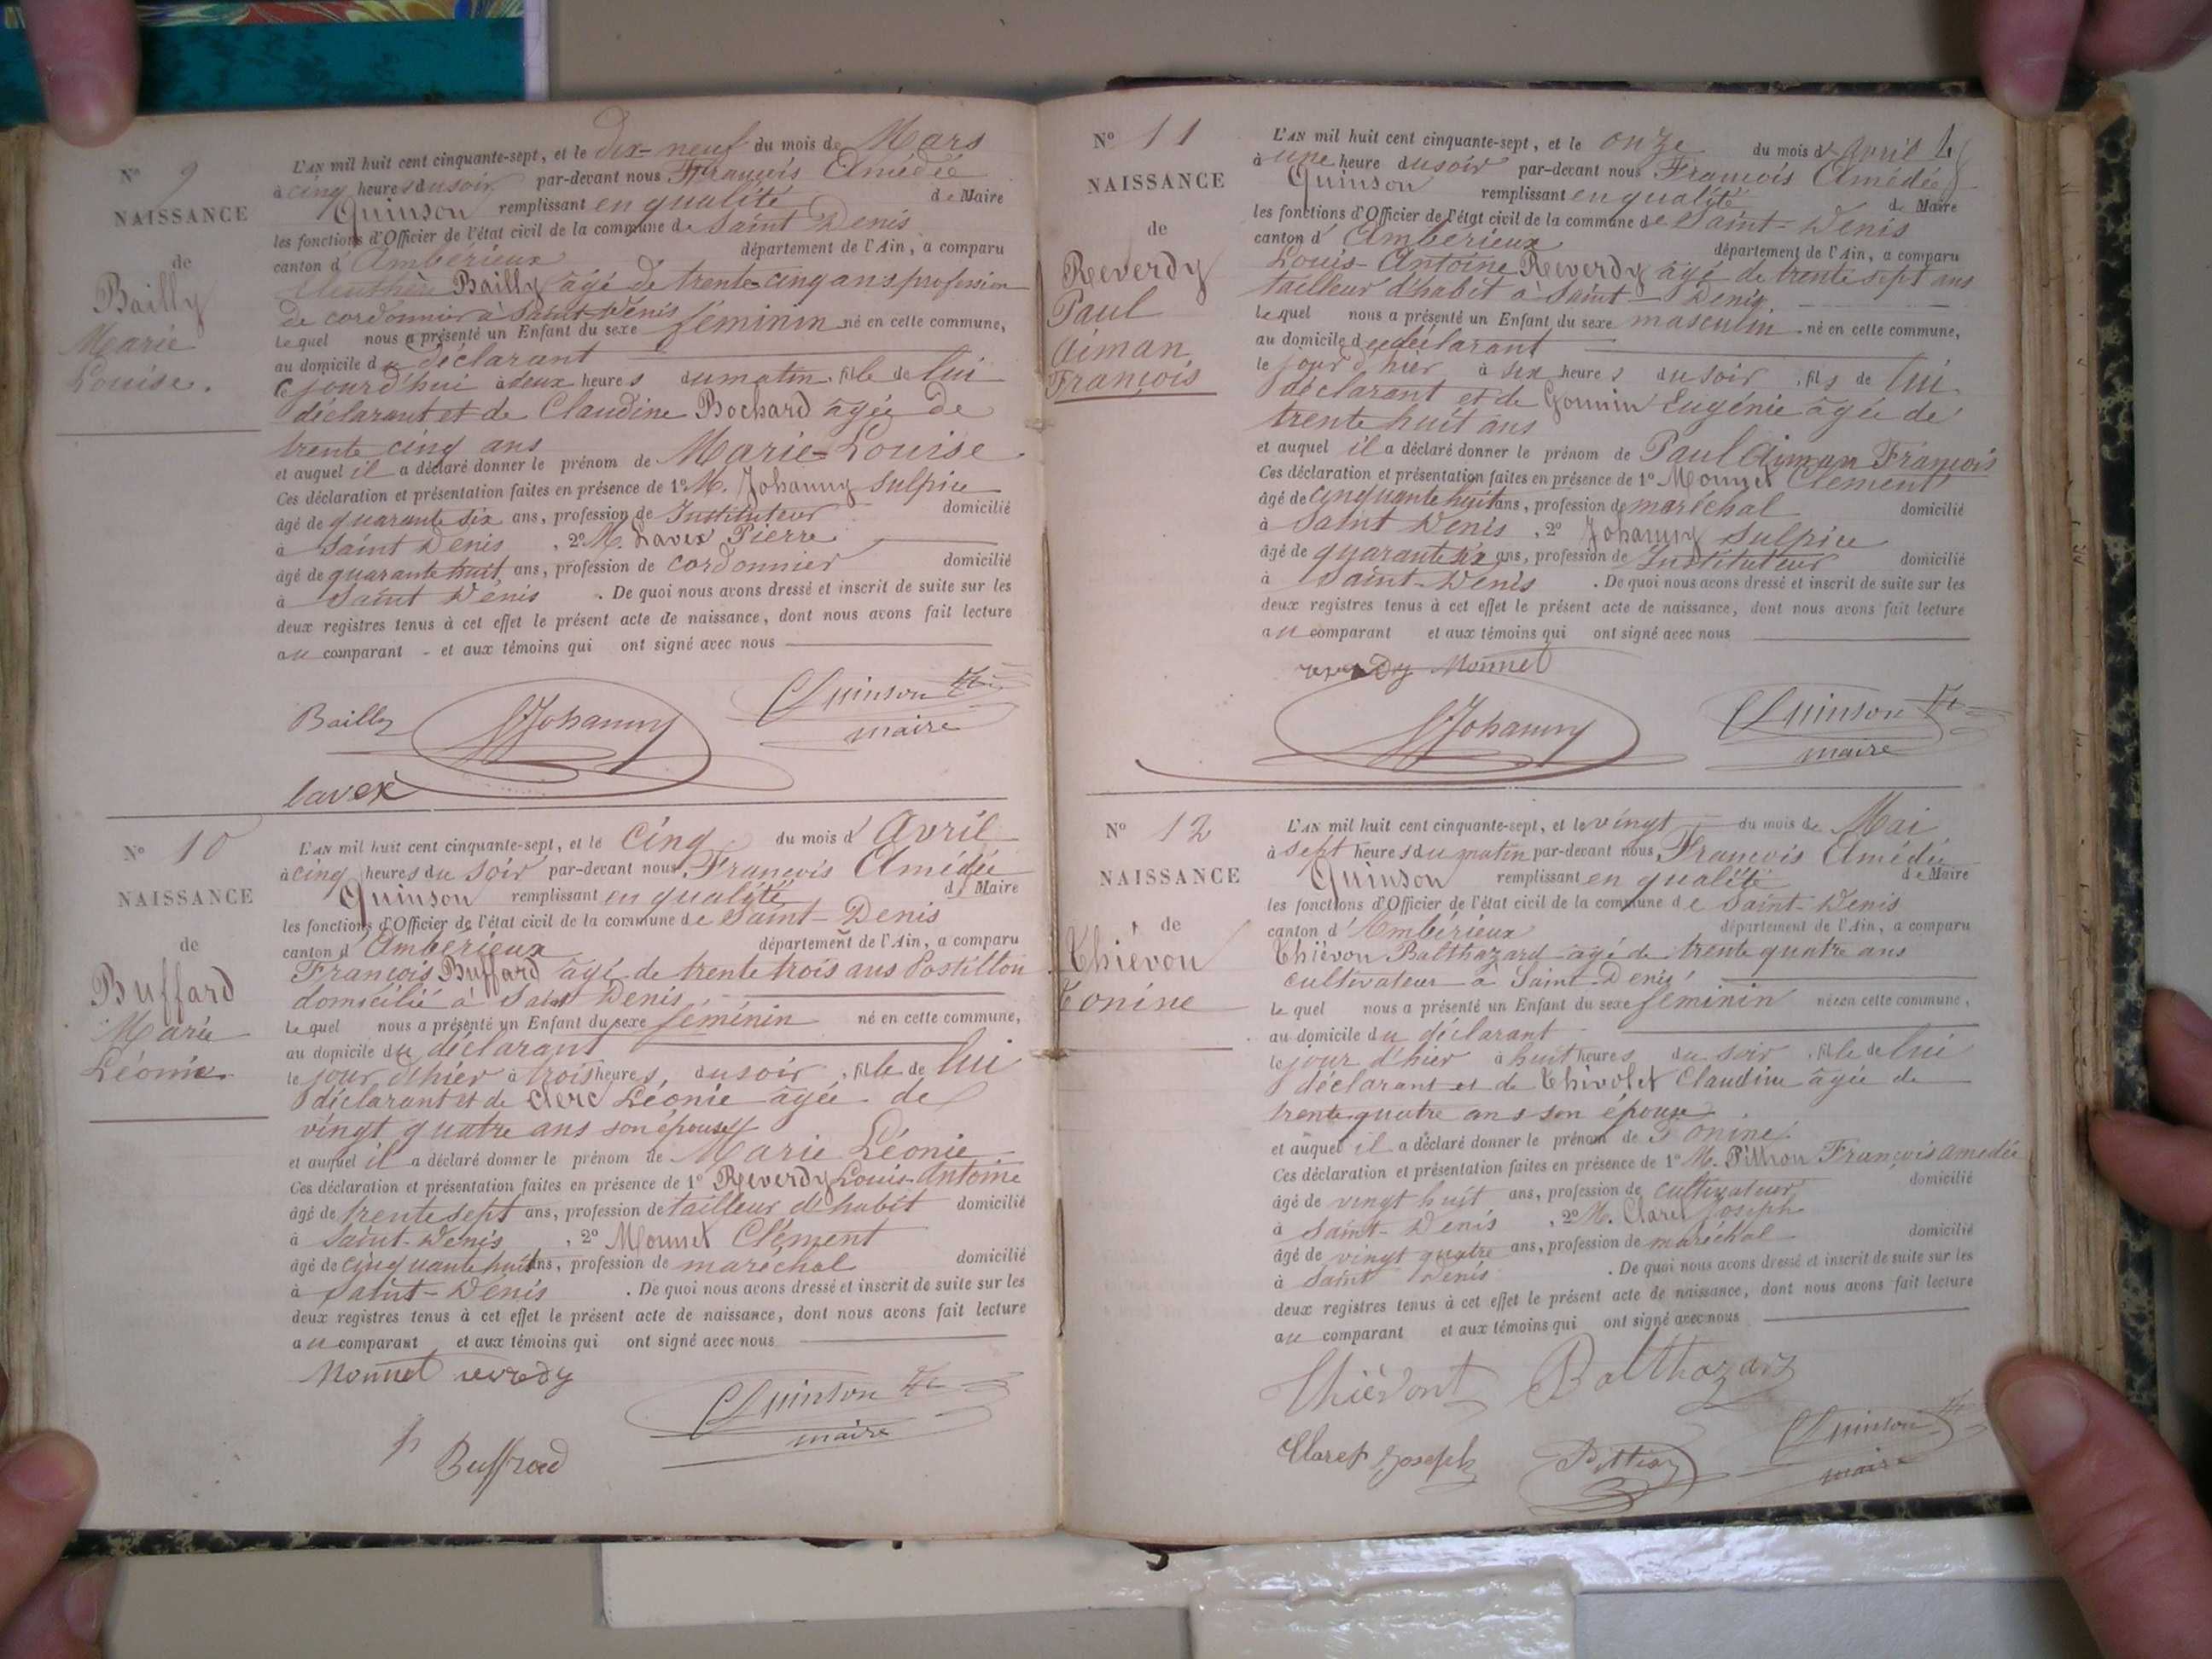 N° 9
NAISSANCE
de
Bailly
Marie
Louise.
L'AN mil huit cent cinquante-sept, et le dix-neuf du mois de Mars
à cinq heures du soir par-devant nous François Amédée
Quinson remplissant en qualité de Maire
les fonctions d'Officier de l'état civil de la commune de Saint Denis
canton d'Ambérieux département de l'Ain, a comparu
Bailly âgé de trente-cinq ans profession
de cordonnier à Saint-Denis
Lequel nous a présenté un Enfant du sexe féminin né en cette commune,
au domicile du déclarant
ce jourd'hui à deux heures du matin, fille de lui
déclarant et de Claudine Bochard âgée de
trente cinq ans
et auquel il a déclaré donner le prénom de Marie-Louise
Ces déclaration et présentation faites en présence de 1° M. Johanny Sulpice
âgé de quarante six ans, profession de Instituteur domicilié
à Saint Denis, 2° M. Lavex Pierre
âgé de quarante huit ans, profession de cordonnier domicilié
à Saint Denis. De quoi nous avons dressé et inscrit de suite sur les
deux registres tenus à cet effet le présent acte de naissance, dont nous avons fait lecture
au comparant et aux témoins qui ont signé avec nous
Bailly Johanny Quinson
maire
Lavex
N° 10
NAISSANCE
de
Buffard
Marie
Léonie
L'AN mil huit cent cinquante-sept, et le cinq du mois d'Avril
à cinq heures du soir par-devant nous François Amédée
Quinson remplissant en qualité de Maire
les fonctions d'Officier de l'état civil de la commune de Saint-Denis
canton d'Ambérieux département de l'Ain, a comparu
François Buffard âgé de trente trois ans Postillon
domicilié à Saint Denis
Lequel nous a présenté un Enfant du sexe féminin né en cette commune,
au domicile du déclarant
le jour d'hier à trois heures du soir, fille de lui
déclarant et de Clerc Léonie âgée de
vingt quatre ans son épouse
et auquel il a déclaré donner le prénom de Marie Léonie
Ces déclaration et présentation faites en présence de 1° Reverdy Louis Antoine
âgé de trente sept ans, profession de tailleur d'habit domicilié
à Saint-Denis, 2° Monnet Clément
âgé de cinquante huit ans, profession de maréchal domicilié
à Saint-Denis. De quoi nous avons dressé et inscrit de suite sur les
deux registres tenus à cet effet le présent acte de naissance, dont nous avons fait lecture
au comparant et aux témoins qui ont signé avec nous
Monnet reverdy
Quinson
maire
Buffard
N° 11
NAISSANCE
de
Reverdy
Paul
Aiman
François
L'AN mil huit cent cinquante-sept, et le onze du mois d'avril
à une heure du soir par-devant nous François Amédée
Quinson remplissant en qualité de Maire
les fonctions d'Officier de l'état civil de la commune de Saint-Denis
canton d'Ambérieux département de l'Ain, a comparu
Louis-Antoine Reverdy âgé de trente sept ans
tailleur d'habit à Saint-Denis
Lequel nous a présenté un Enfant du sexe masculin né en cette commune,
au domicile du déclarant
le jour d'hier à six heures du soir, fils de lui
déclarant et de Gonnin Eugénie âgée de
trente huit ans
et auquel il a déclaré donner le prénom de Paul Aiman François
Ces déclaration et présentation faites en présence de 1° Monnet Clément
âgé de cinquante huit ans, profession de maréchal domicilié
à Saint Denis, 2° Johanny Sulpice
âgé de quarante six ans, profession de Instituteur domicilié
à Saint-Denis. De quoi nous avons dressé et inscrit de suite sur les
deux registres tenus à cet effet le présent acte de naissance, dont nous avons fait lecture
au comparant et aux témoins qui ont signé avec nous
reverdy Monnet
Johanny Quinson
maire
N° 12
NAISSANCE
de
Thiévon
Tonine
L'AN mil huit cent cinquante-sept, et le vingt du mois de Mai
à sept heures du matin par-devant nous François Amédée
Quinson remplissant en qualité de Maire
les fonctions d'Officier de l'état civil de la commune de Saint-Denis
canton d'Ambérieux département de l'Ain, a comparu
Thiévon Balthazard âgé de trente quatre ans
cultivateur à Saint-Denis
Lequel nous a présenté un Enfant du sexe féminin né en cette commune,
au domicile du déclarant
le jour d'hier à huit heures du soir, fille de lui
déclarant et de Thivolet Claudine âgée de
trente quatre ans son épouse
et auquel il a déclaré donner le prénom de Tonine
Ces déclaration et présentation faites en présence de 1° M. Pithion François amédée
âgé de vingt huit ans, profession de cultivateur domicilié
à Saint-Denis, 2° M. Claret Joseph
âgé de vingt quatre ans, profession de maréchal domicilié
à Saint Denis. De quoi nous avons dressé et inscrit de suite sur les
deux registres tenus à cet effet le présent acte de naissance, dont nous avons fait lecture
au comparant et aux témoins qui ont signé avec nous
Thiévont Balthazard
Claret Joseph Pithion Quinson
maire